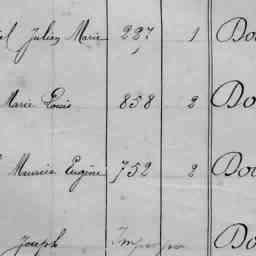 el Julien Marie 227 1 Do
Marie Louis 858 2 Do
Maurice Eugène 752 2 Do
Joseph Do